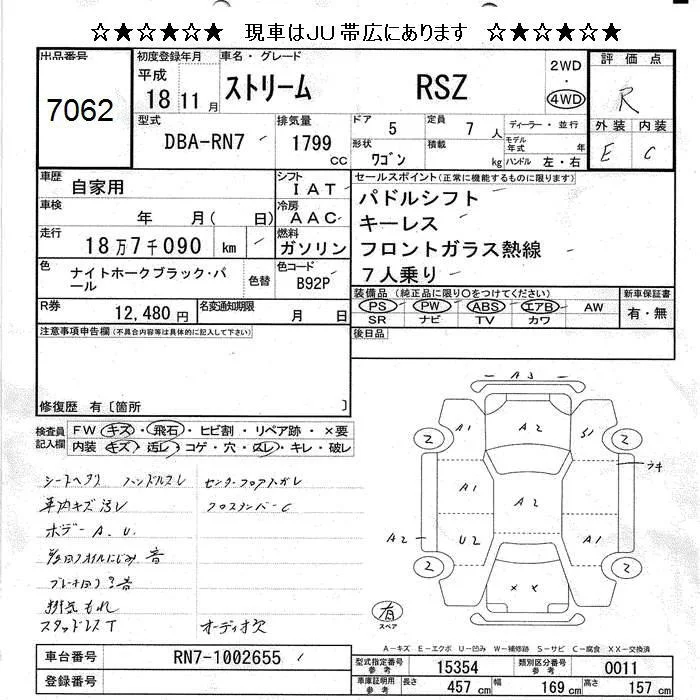 ☆★☆★☆★ 現車はJU帯広にあります ☆★☆★☆★
出品番号
7062
初度登録年月
平成
18 11 月
車名・グレード
ストリーム RSZ
2WD
・
4WD
評価点
R
外装 内装
E C
型式
DBA-RN7
排気量
1799
CC
ドア
5
定員
7 人
形状
ワゴン
積載
kg
ディーラー・並行
モデル年式 年
ハンドル 左・右
車歴
自家用
シフト
IAT
車検
年 月( 日)
冷房
AAC
走行
18万7千090 km
燃料
ガソリン
色
ナイトホークブラック・パール
色替
色コード
B92P
R券
12,480 円
名変通知期限
月 日
セールスポイント(正常に機能するものに限ります)
パドルシフト
キーレス
フロントガラス熱線
7人乗り
装備品 (純正品に限り〇をつけてください)
PS PW ABS エアB AW
SR ナビ TV カワ
新車保証書
有・無
後日品
注意事項申告欄(不具合内容等は具体的に記入して下さい)
修復歴 有〔箇所 〕
検査員記入欄
FW キズ・飛石・ヒビ割・リペア跡・×要
内装 キズ・汚レ・コゲ・穴・スレ・キレ・破レ
シートヘタリ ハンドルスレ
車内キズ汚レ
ボデーA.U.
排気もれ
スタッドレスT
オーディオ欠
A3
2
A1
A2
S1
2
ウキ
A1
A2
A2
U2
A1
2
××
2
有
スペア
A-キズ E-エクボ U-凹み W-補修跡 S-サビ C-腐食 XX-交換済
車台番号
RN7-1002655
登録番号
型式指定番号
参考
15354
類別区分番号
参考
0011
車庫証明用
参考
長さ
457 cm
幅
169 cm
高さ
157 cm